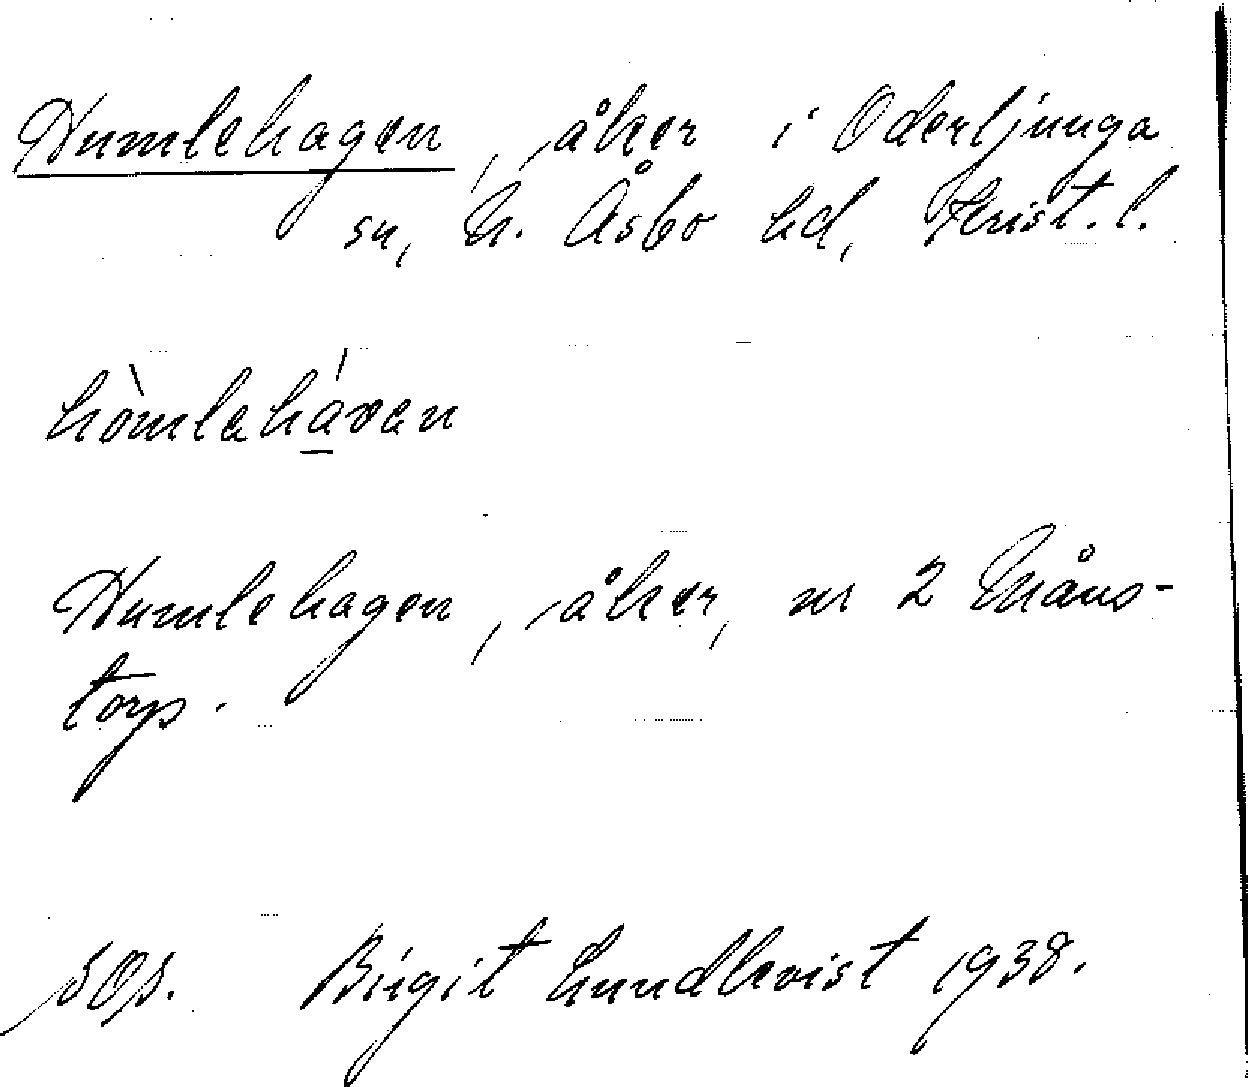 Humlehagen, åker i Oderljunga
sn, N. Åsbo hd, Krist. l.
hòmlahá̱ven
Humlehagen, åker, nr 2 Måns-
torp.
Birgit Lundkvist 1938.